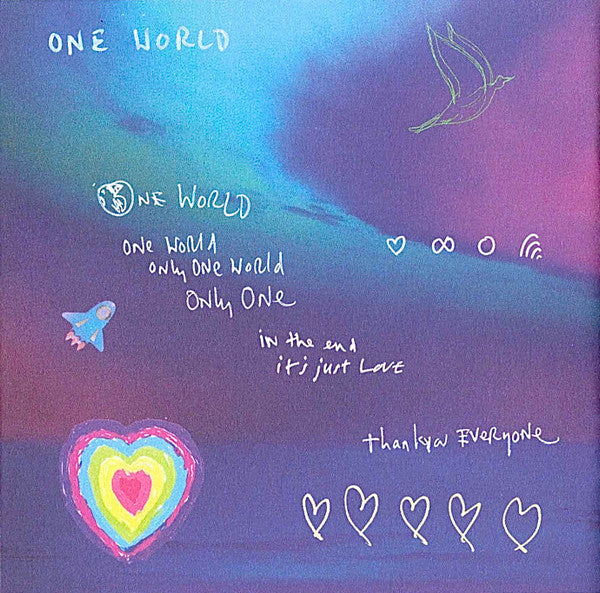 ONE WORLD
ONE WORLD
ONE WORLD
ONLY ONE WORLD
ONLY ONE
in the end
it's just LOVE
thankyou EVERYONE